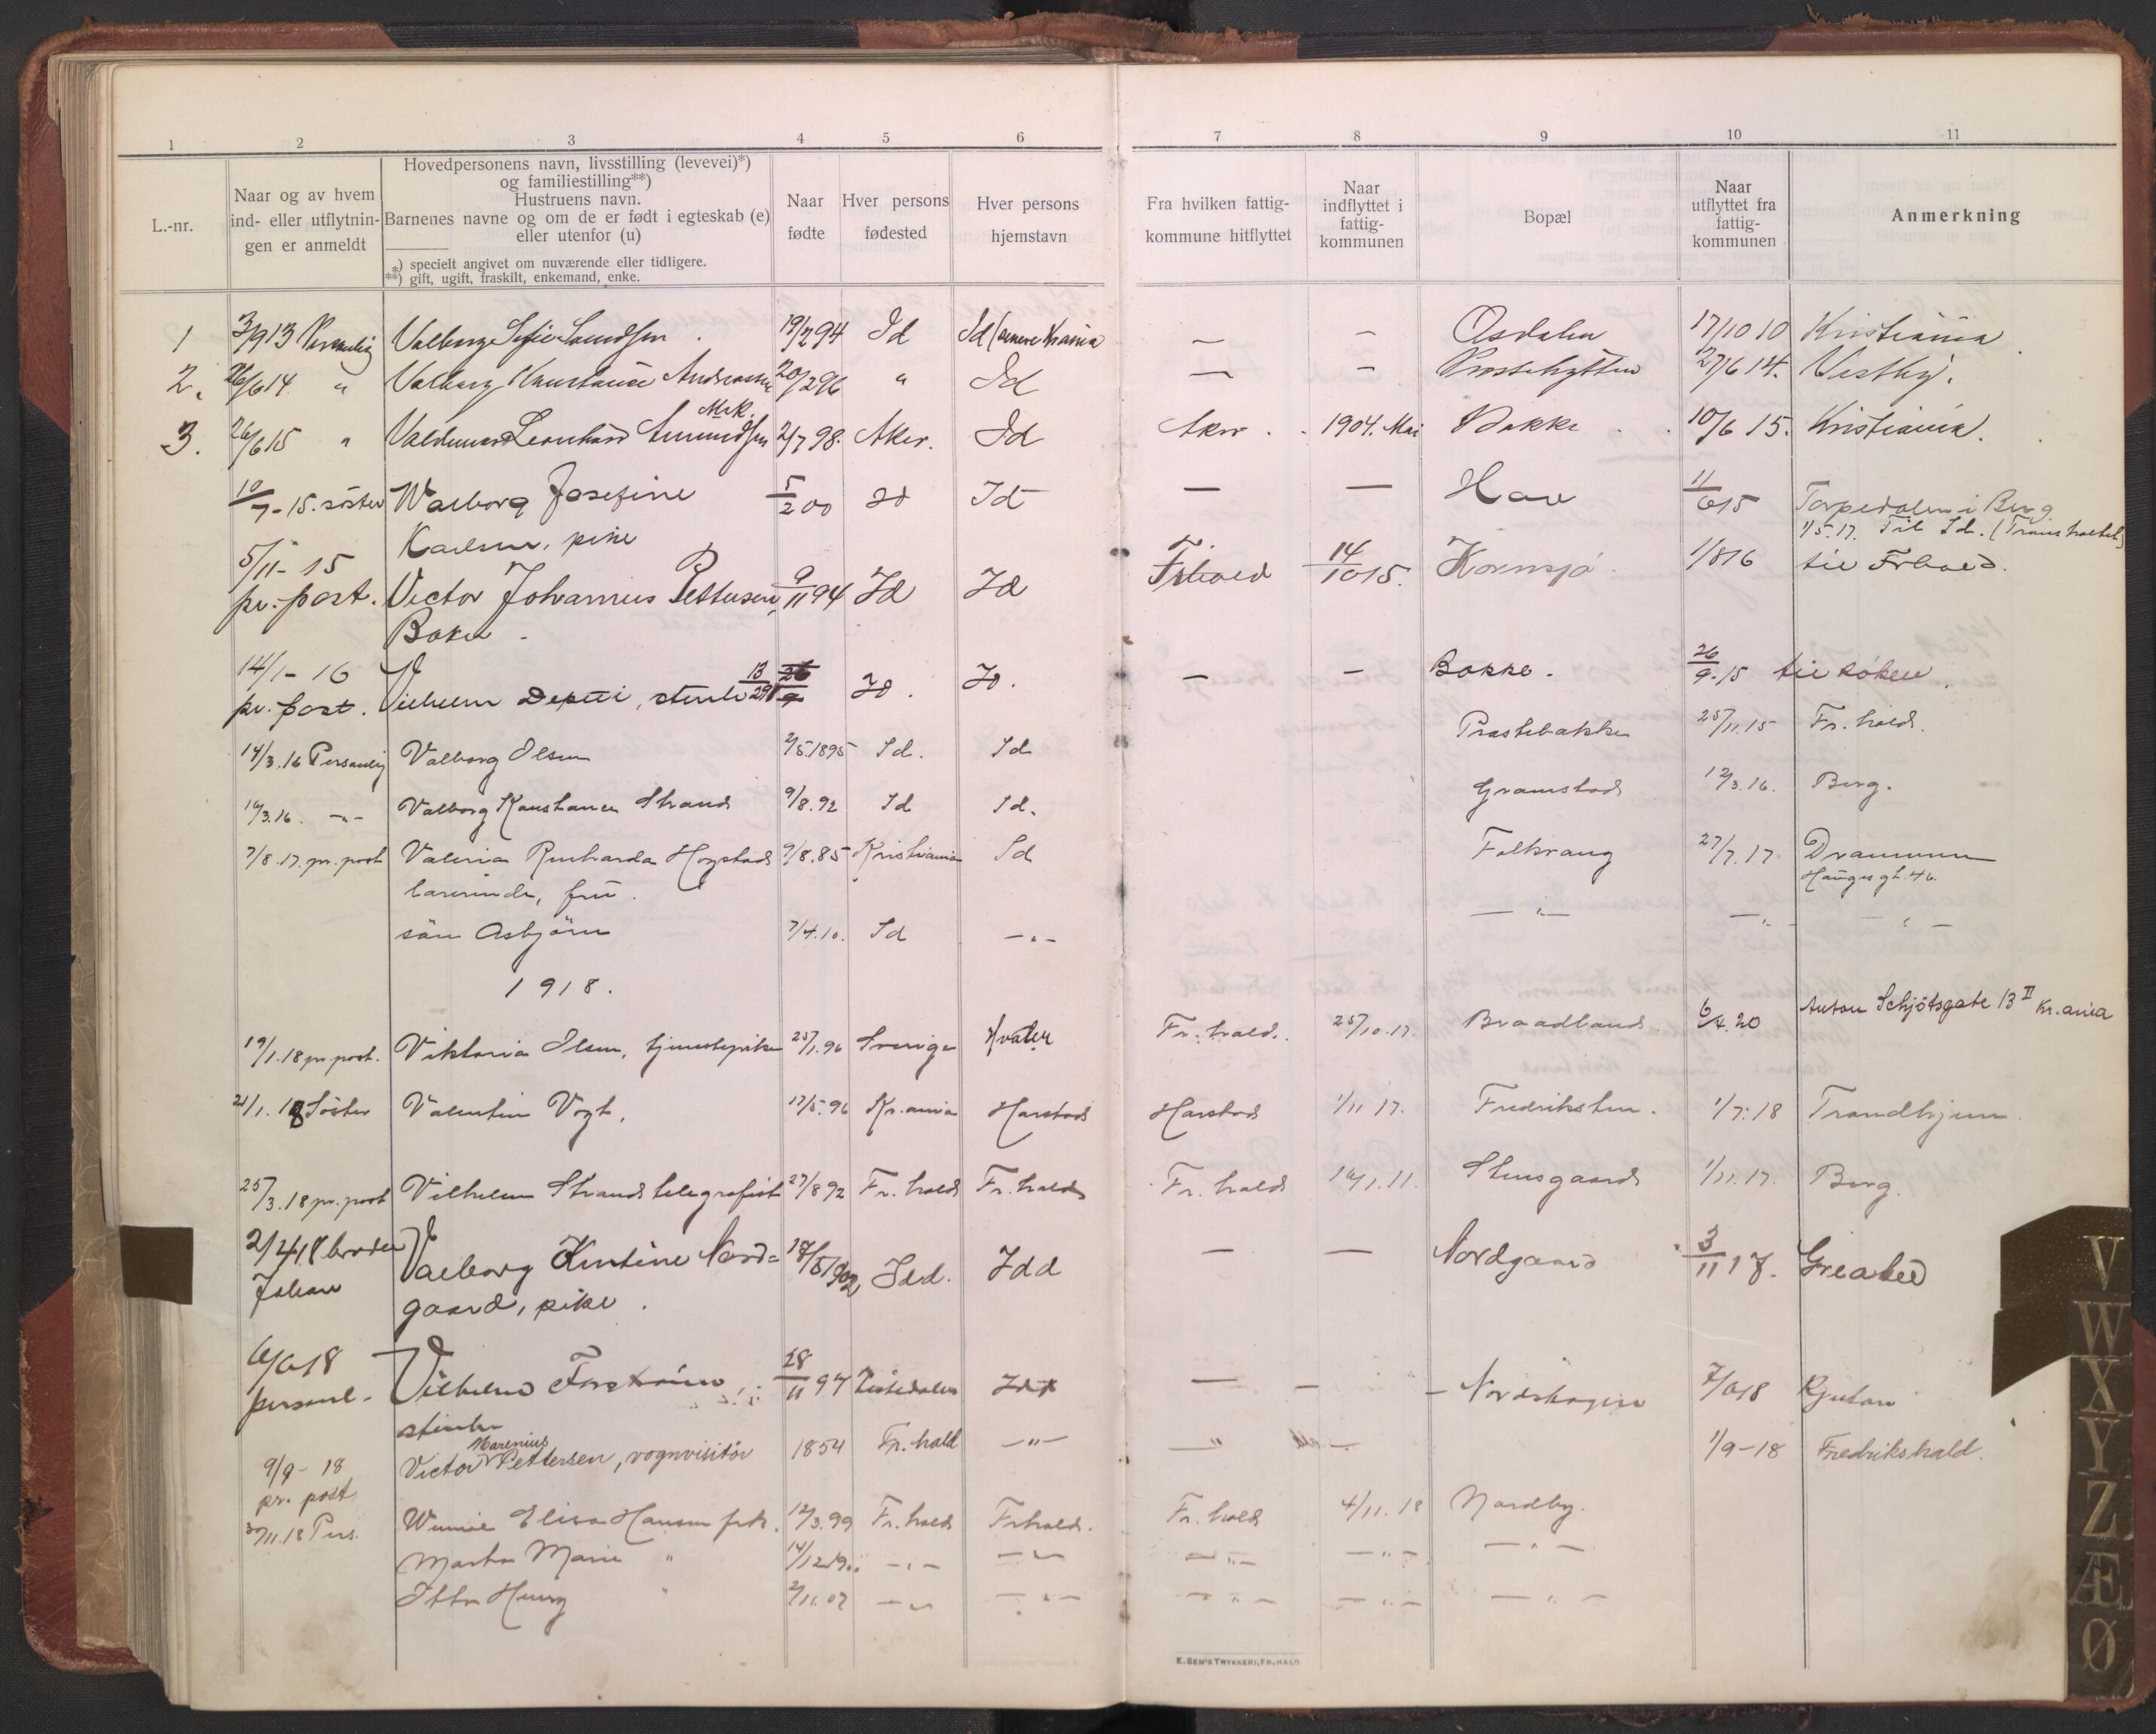 1 2 3 4 5 6 7 8 9 10 11
L.-nr.
Naar og av hvem
ind- eller utflytnin-
gen er anmeldt
Hovedpersonens navn, livsstilling (levevei)*)
og familiestilling**)
Hustruens navn.
Barnenes navne og om de er født i egteskab (e)
eller utenfor (u)
*) specielt angivet om nuværende eller tidligere.
**) gift, ugift, fraskilt, enkemand, enke.
Naar
fødte
Hver persons
fødested
Hver persons
hjemstavn
Fra hvilken fattig-
kommune hitflyttet
Naar
indflyttet i
fattig-
kommunen
Bopæl
Naar
utflyttet fra
fattig-
kommunen
Anmerkning
1 3/9 13 Personlig Valborg Sofie 19/7 94 Id Id (senere Krania — — Asdalen 17/10 10 Kristiania
2. 26/6 14 " Valborg Konstance Andreassen 20/2 96 " Id — — Prestehytten 27/6 14. Vestby.
Mrk.
3. 26/6 15 " Valdemar Leonhard Amundsen 2/7 98. Aker. Id Aker 1904. Mai Bakke 10/6 15. Kristiania.
10/7-15. søster Walborg Josefine 5/2 00 Id Id — — 11/6 15 Torpedalen i Berg
Karlsen, pike 1/5.17. Til Id.
5/11-15
pr. post. Victor Johannes Pettersen 9/11 94 Id Id Frhald 14/10 15. Kornsjø 1/8 16 til Frhald.
Baker
14/1-16
pr. post. Vilhelm 13/2 98 26/9 Id. Id. — — Bakke. 26/9.15
14/3.16 Personlig Valborg Olsen 2/5.1895 Id. Id Prestebakke 25/11.15 Fr. hald.
16/3.16. -"- Valborg Konstance Strand 9/8.92 Id Id. Gramstad 12/3.16. Berg.
7/8.17. pr. post Valeria Rucharda Hogstad 9/8.85 Kristiania Id Folkvang 27/7.17 Drammen
Haugesgt. 46.
lærerinde, frü.
sön Asbjörn 7/4.10. Id -"- -"- -"- -"-
1918.
Anton Schjøtsgate 13 II Kr.ania
19/1.18 pr. post. Viktoria Olsen, tjenestepike 25/1.96 Sverige Hvaler Fr. hald. 25/10.17. Braadland 6/4.20
21/1.18 Söster Valentin Vogt, 17/5.96 Kr.ania Harstad Harstad 1/11 17. Fredriksten. 1/7.18 Trondhjem.
25/3.18 pr. post Vilhelm Strand telegrafist 27/8 92 Fr. hald Fr. hald Fr. hald 16/1.11. Stensgaard 1/11.17. Berg.
2/4 18 broder Valborg Kristine Nord= 18/5 1902 Idd. Idd — — Nordgaard 3/11 17. Greaker
Johan gaard, pike.
6/6 18 Vilhelm 28/11 97 Tistedalen Idd — — Nordskogen 7/6 18 Rjukan
personl.
Marenius
9/9-18 Victor Pettersen, vognvisitör 1854 Fr. hald -"- -"- — 1/9-18 Fredrikshald.
pr. post
30/11.18 Pers. Elisa Hansen frk. 12/3.99 Fr. hald Frhald. Fr. hald 4/11.18 Nordby.
Marta Marie " 14/12 19 -"- -"- -"- -"- -"-
" 2/11.02 -"- -"- -"- -"- -"-
E. SEM'S TRYKKERI, FR.HALD
V
W
X
Y
Z
Æ
Ø